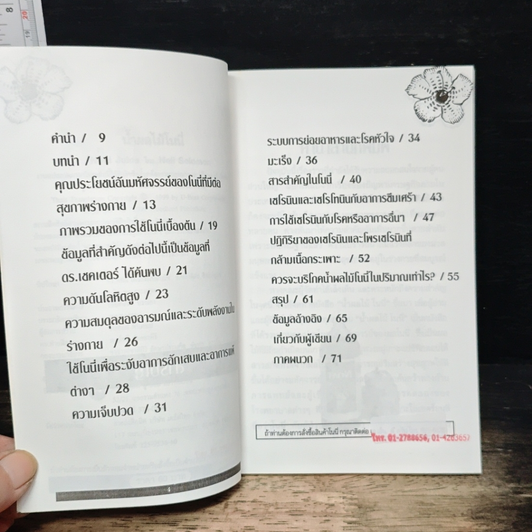 คำนำ / 9
บทนำ / 11
คุณประโยชน์อันมหัศจรรย์ของโนนี่ที่มีต่อ
สุขภาพร่างกาย / 13
ภาพรวมของการใช้โนนี่เบื้องต้น / 19
ข้อมูลที่สำคัญดังต่อไปนี้เป็นข้อมูลที่
ดร.เซคเตอร์ ได้ค้นพบ / 21
ความดันโลหิตสูง / 23
ความสมดุลของอารมณ์และระดับพลังงานใน
ร่างกาย / 26
ใช้โนนี่เพื่อระงับอาการอักเสบและอาการแพ้
ต่างๆ / 28
ความเจ็บปวด / 31
ระบบการย่อยอาหารและโรคหัวใจ / 34
มะเร็ง / 36
สารสำคัญในโนนี่ / 40
เซโรนินและเซโรโทนินกับอาการซึมเศร้า / 43
การใช้เซโรนินกับโรคหรืออาการอื่นๆ / 47
ปฏิกิริยาของเซโรนินและโพรเซโรนินที่
กล้ามเนื้อกระเพาะ / 52
ควรจะบริโภคน้ำผลไม้โนนี่ในปริมาณเท่าไร? / 55
สรุป / 61
ข้อมูลอ้างอิง / 65
เกี่ยวกับผู้เขียน / 69
ภาคผนวก / 71
ถ้าท่านต้องการสั่งซื้อสินค้าโนนี่ กรุณาติดต่อ
โทร. 01-2788658, 01-4283657